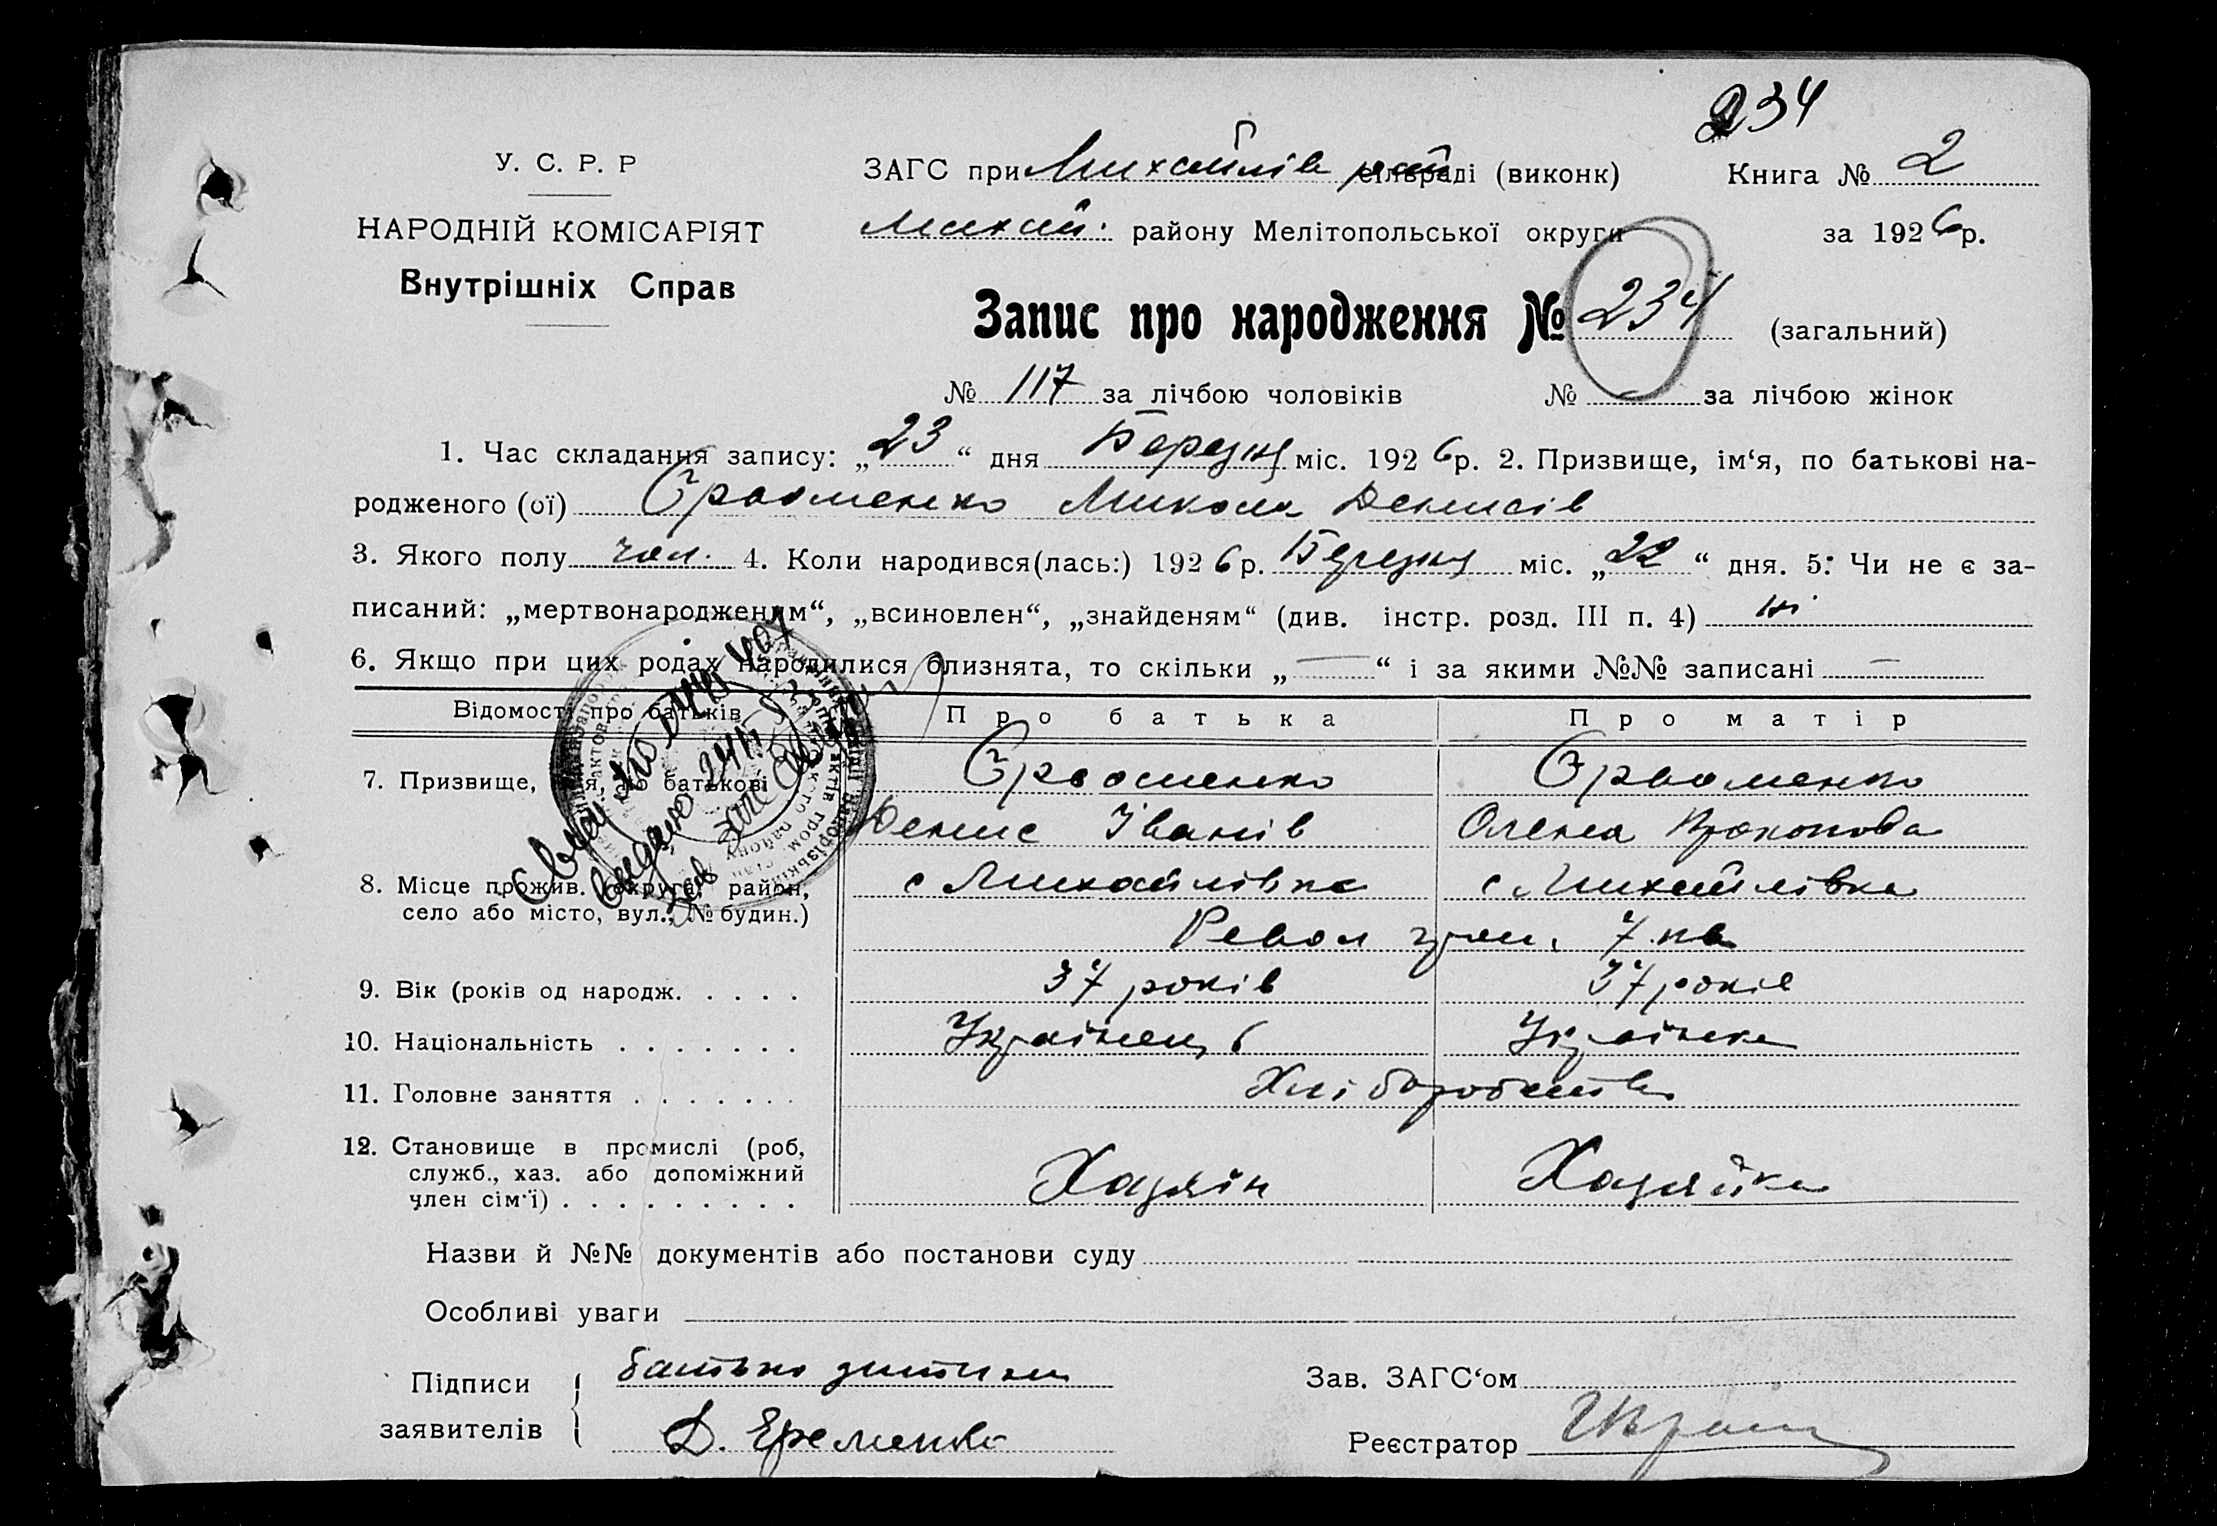 234
У. С. Р. Р
НАРОДНІЙ КОМІСАРІЯТ
Внутрішніх Справ
ЗАГС при Михайлів рай сільраді (виконк)
Книга № 2
Михай. району Мелітопольської округи
за 1926р.
Запис про народження № 234 (загальний)
№ 117 за лічбою чоловіків № за лічбою жінок
1. Час складання запису: „23“ дня Березня міс. 1926р. 2. Призвище, ім‘я, по батькові на-
родженого (ої) Микола Денисів
3. Якого полу чол. 4. Коли народився(лась:) 1926р. Березня міс. „22“ дня. 5: Чи не є за-
писаний: „мертвонародженим“, „всиновлен“, „знайденям“ (див. інстр. розд. III п. 4) ні
6. Якщо при цих родах народилися близнята, то скільки „—“ і за якими №№ записані —
Відомості про батьків Про батька Про матір
7. Призвище, ім‘я, по батькові
Денис Іванів Олена Прокопова
8. Місце прожив. (округа, район,
село або місто, вул., № будин.)
с Михайлівка с Михайлівка
Револ гром. 7 кв
9. Вік (років од народж. . . . . 37 років 37 років
10. Національність . . . . . . . Українець Українка
11. Головне заняття . . . . . . . Хліборобство
12. Становище в промислі (роб,
служб., хаз. або допоміжний
член сім‘ї) . . . . . . . . . Хазяїн Хазяйка
Назви й №№ документів або постанови суду
Особливі уваги
Підписи
заявителів
батько дитини
Д. Єременко
Зав. ЗАГС‘ом
Реєстратор